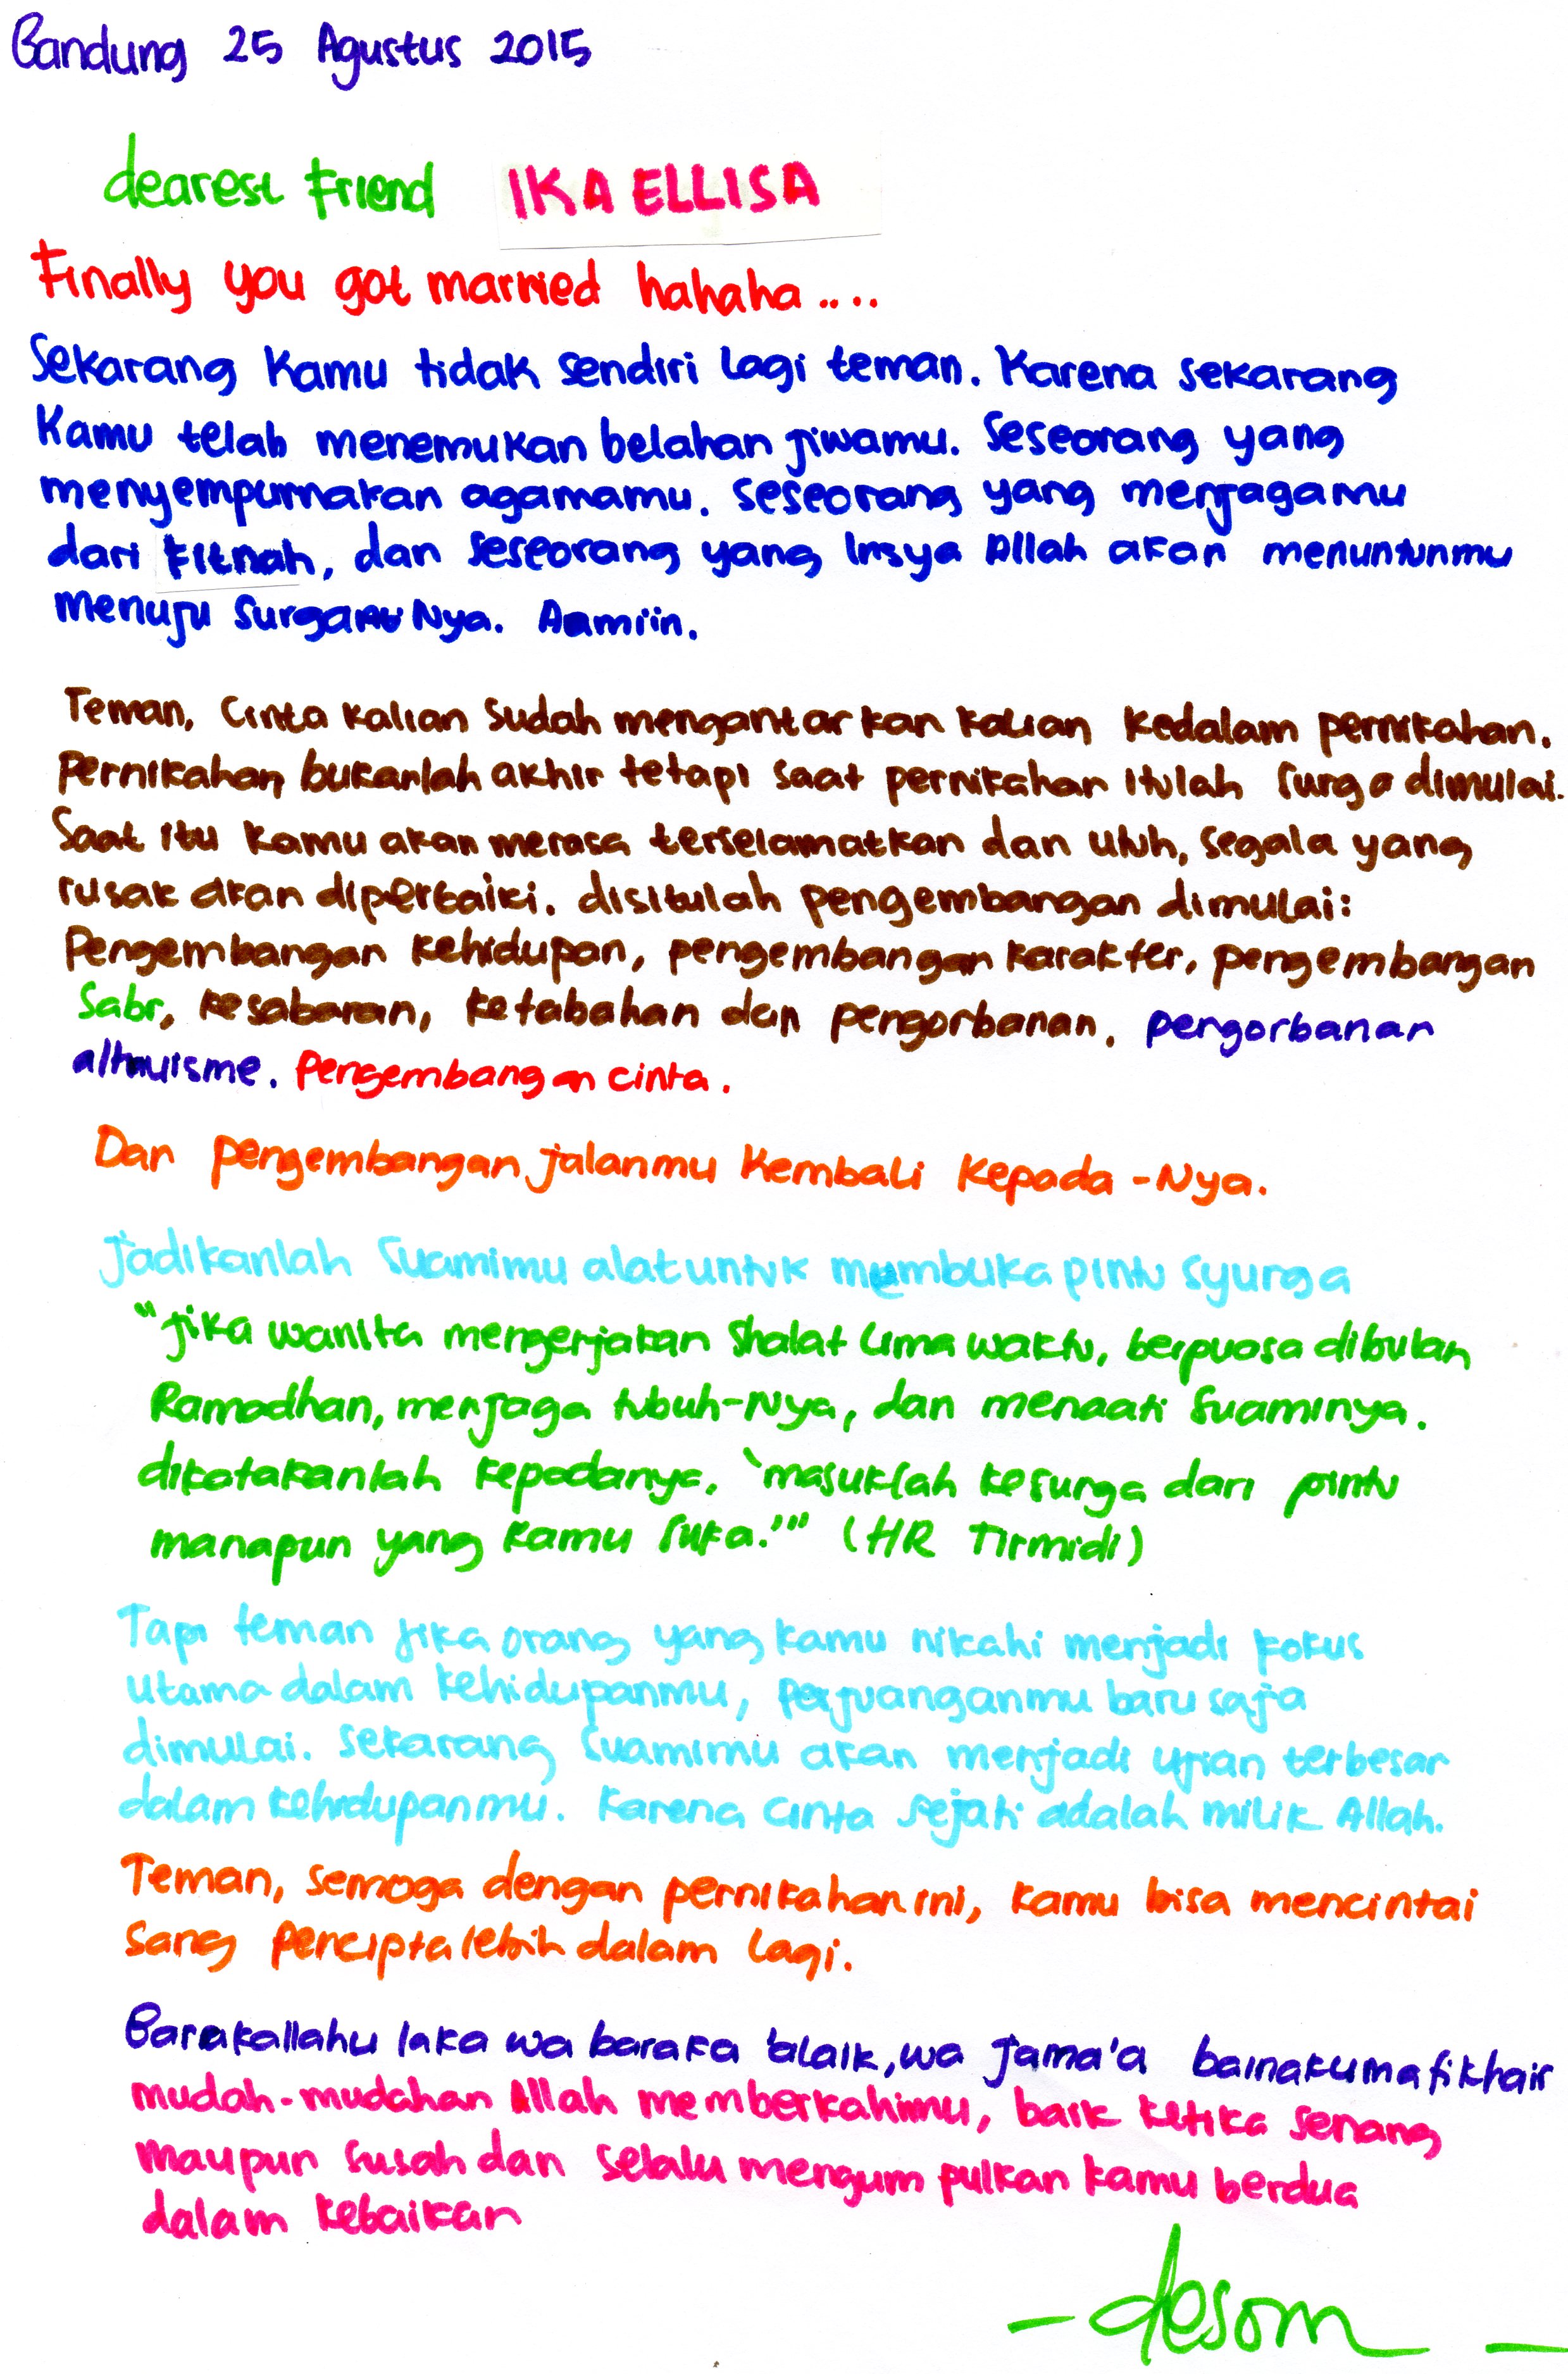 Bandung 25 Agustus 2015
dearest Friend IKA ELLISA
Finally you got married hahaha....
Sekarang Kamu tidak sendiri lagi teman. Karena sekarang
Kamu telah menemukan belahan jiwamu. Seseorang yang
menyempurnakan agamamu. Seseorang yang menjagamu
dari Fitnah, dan Seseorang yang Insya Allah akan menuntunmu
menuju Surga Nya. Aamiin.
Teman, Cinta kalian Sudah mengantarkan kalian kedalam pernikahan.
Pernikahan bukanlah akhir tetapi saat pernikahan itulah Surga dimulai.
Saat itu kamu akan merasa terselamatkan dan utuh, segala yang
rusak akan diperbaiki. disitulah pengembangan dimulai:
Pengembangan kehidupan, pengembangan karakter, pengembangan
Sabr, kesabaran, ketabahan dan pengorbanan. pengorbanan
altruisme. Pengembangan cinta.
Dan pengembangan jalanmu kembali kepada -Nya.
Jadikanlah Suamimu alat untuk membuka pintu syurga
"Jika wanita mengerjakan Shalat lima waktu, berpuasa dibulan
Ramadhan, menjaga tubuh-Nya, dan menaati Suaminya.
dikatakanlah kepadanya, 'masuklah kesurga dari pintu
manapun yang kamu suka.'" (HR Tirmidi)
Tapi teman jika orang yang kamu nikahi menjadi fokus
utama dalam kehidupanmu, perjuanganmu baru saja
dimulai. Sekarang Suamimu akan menjadi ujian terbesar
dalam kehidupanmu. Karena cinta sejati adalah milik Allah.
Teman, semoga dengan pernikahan ini, kamu bisa mencintai
Sang pencipta lebih dalam lagi.
Barakallahu laka wa baraka 'alaik, wa jama'a bainakuma fi khair
mudah-mudahan Allah memberkahimu, baik ketika senang
maupun susah dan selalu mengumpulkan kamu berdua
dalam kebaikan
-desom-